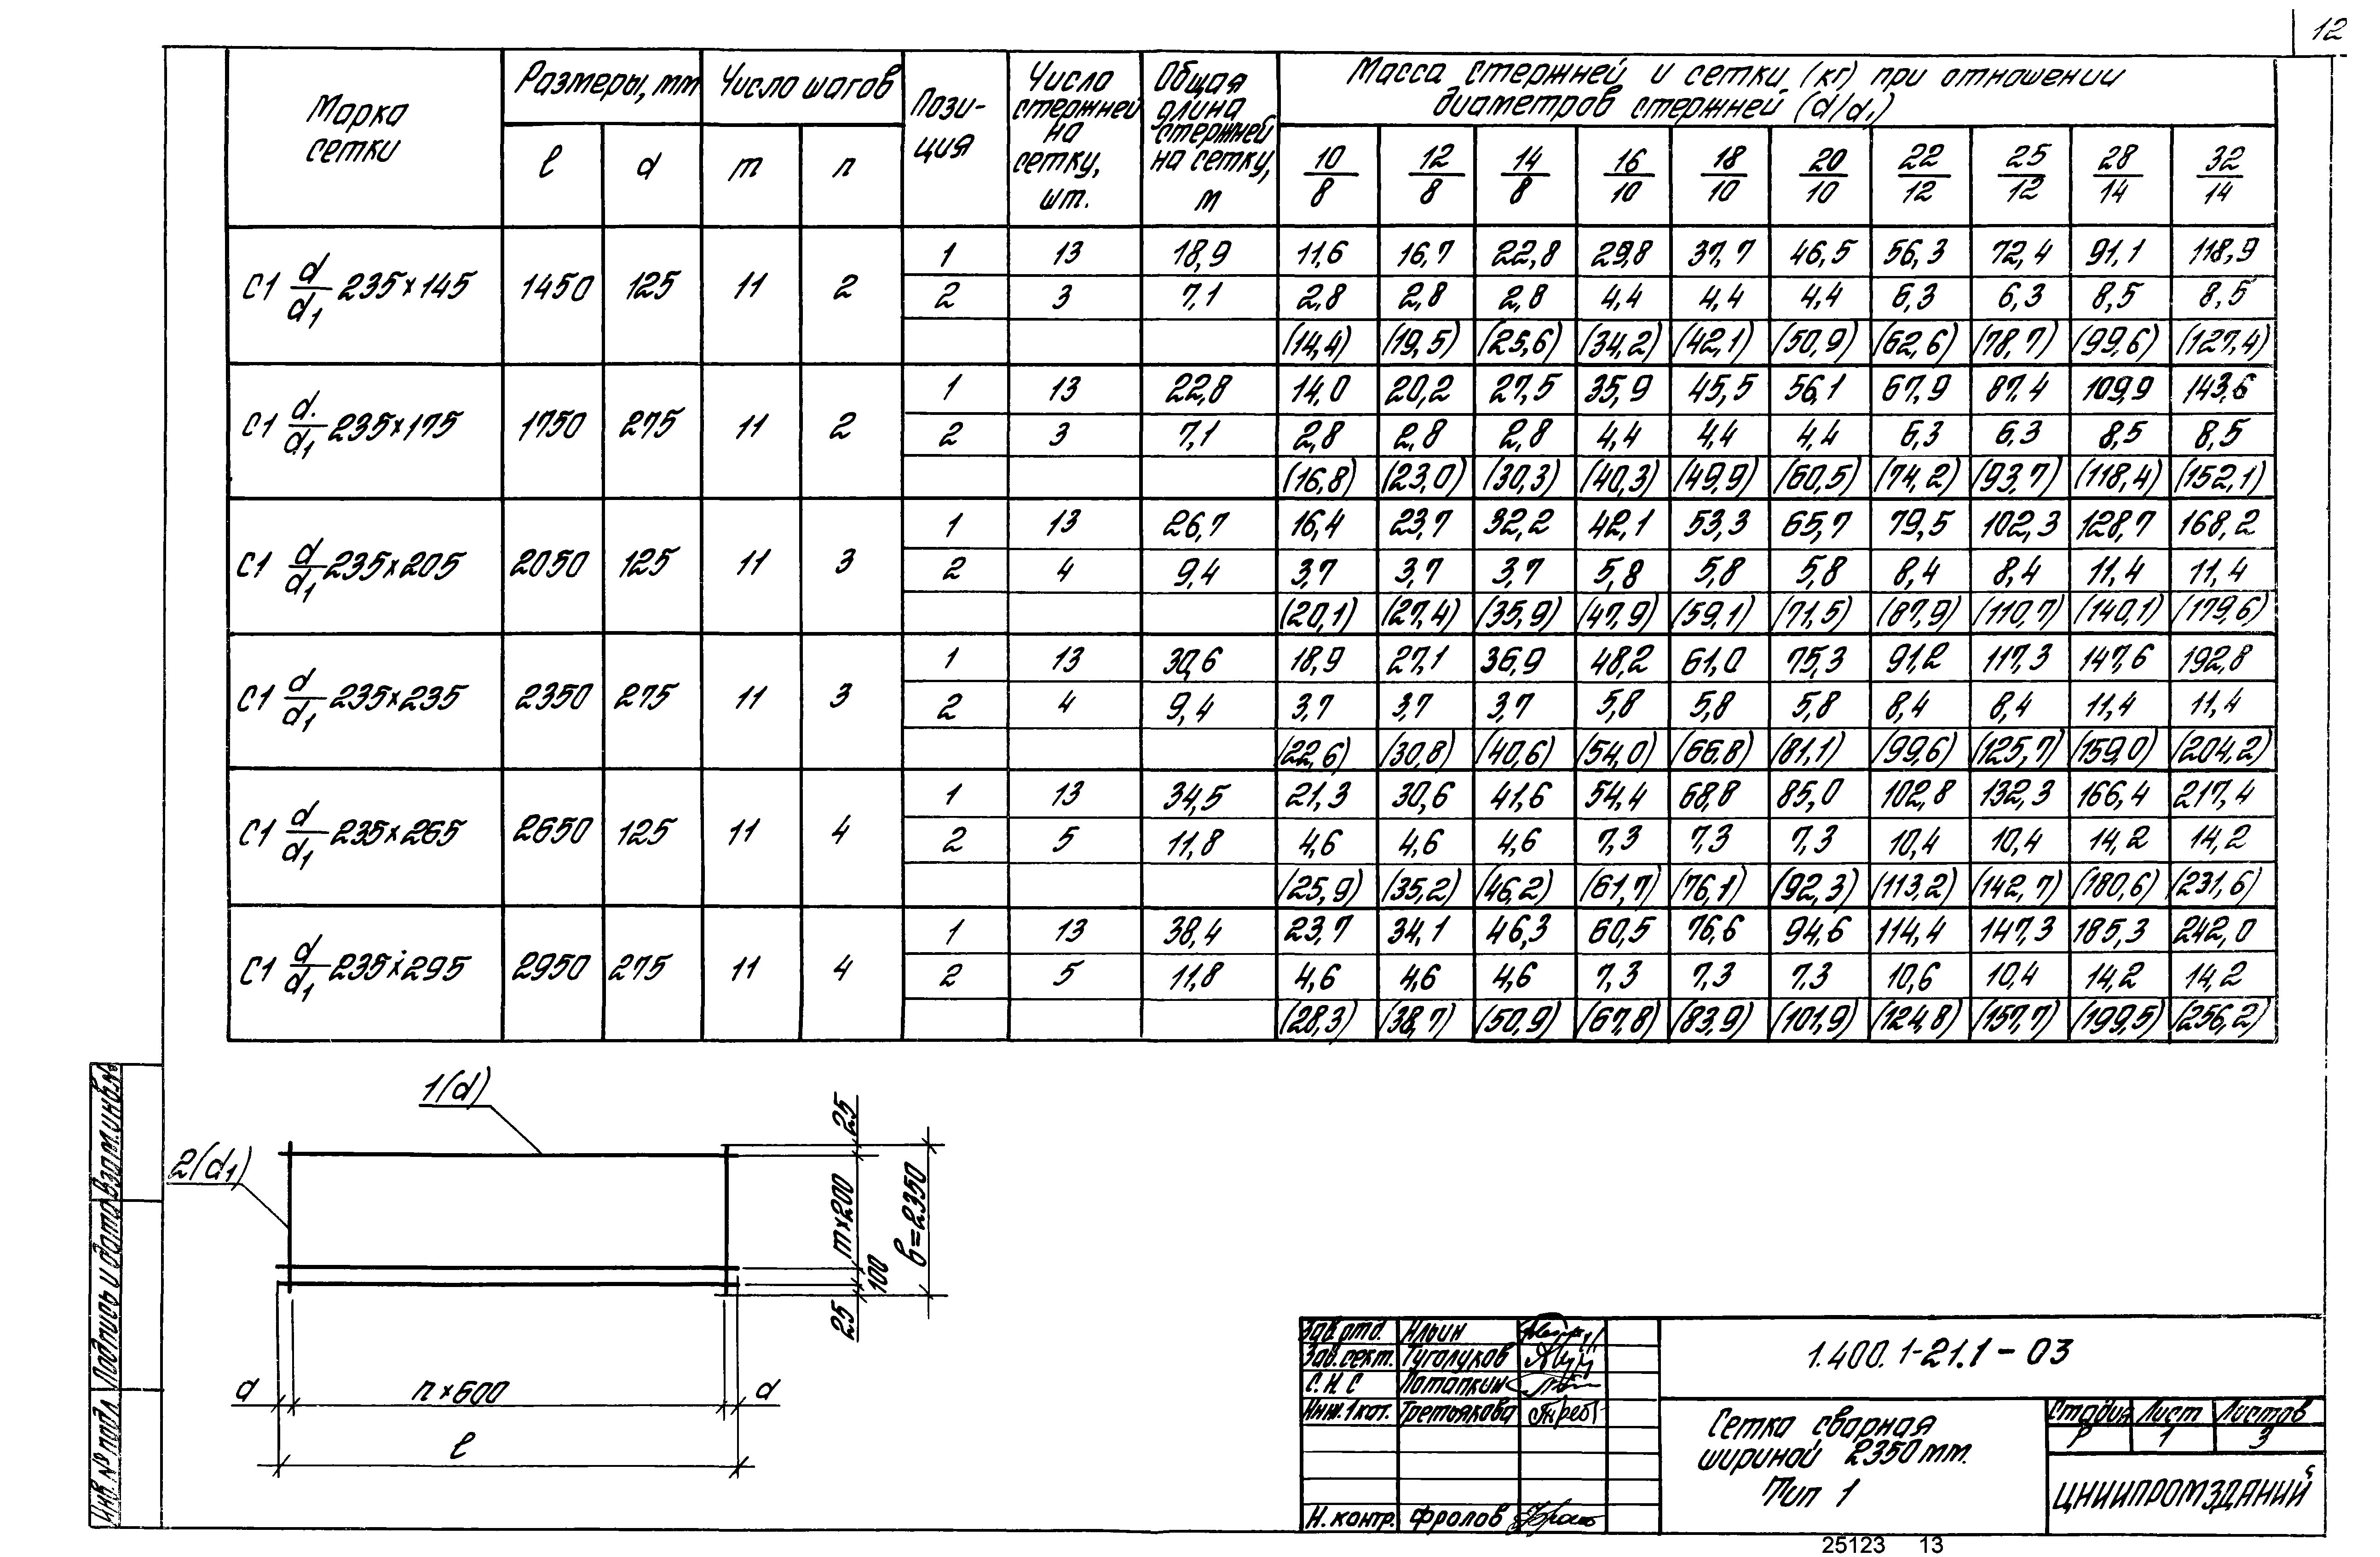 12
Марка сетки | Размеры, мм | Число шагов | Пози-ция | Число стержней на сетку, шт. | Общая длина стержней на сетку, м | Масса стержней и сетки (кг) при отношении диаметров стержней (d/d1)
l | d | m | n | 10/8 | 12/8 | 14/8 | 16/10 | 18/10 | 20/10 | 22/12 | 25/12 | 28/14 | 32/14
С1 d/d1 235×145 | 1450 | 125 | 11 | 2 | 1 | 13 | 18,9 | 11,6 | 16,7 | 22,8 | 29,8 | 37,7 | 46,5 | 56,3 | 72,4 | 91,1 | 118,9
2 | 3 | 7,1 | 2,8 | 2,8 | 2,8 | 4,4 | 4,4 | 4,4 | 6,3 | 6,3 | 8,5 | 8,5
(14,4) | (19,5) | (25,6) | (34,2) | (42,1) | (50,9) | (62,6) | (78,7) | (99,6) | (127,4)
С1 d/d1 235×175 | 1750 | 275 | 11 | 2 | 1 | 13 | 22,8 | 14,0 | 20,2 | 27,5 | 35,9 | 45,5 | 56,1 | 67,9 | 87,4 | 109,9 | 143,6
2 | 3 | 7,1 | 2,8 | 2,8 | 2,8 | 4,4 | 4,4 | 4,4 | 6,3 | 6,3 | 8,5 | 8,5
(16,8) | (23,0) | (30,3) | (40,3) | (49,9) | (60,5) | (74,2) | (93,7) | (118,4) | (152,1)
С1 d/d1 235×205 | 2050 | 125 | 11 | 3 | 1 | 13 | 26,7 | 16,4 | 23,7 | 32,2 | 42,1 | 53,3 | 65,7 | 79,5 | 102,3 | 128,7 | 168,2
2 | 4 | 9,4 | 3,7 | 3,7 | 3,7 | 5,8 | 5,8 | 5,8 | 8,4 | 8,4 | 11,4 | 11,4
(20,1) | (27,4) | (35,9) | (47,9) | (59,1) | (71,5) | (87,9) | (110,7) | (140,1) | (179,6)
С1 d/d1 235×235 | 2350 | 275 | 11 | 3 | 1 | 13 | 30,6 | 18,9 | 27,1 | 36,9 | 48,2 | 61,0 | 75,3 | 91,2 | 117,3 | 147,6 | 192,8
2 | 4 | 9,4 | 3,7 | 3,7 | 3,7 | 5,8 | 5,8 | 5,8 | 8,4 | 8,4 | 11,4 | 11,4
(22,6) | (30,8) | (40,6) | (54,0) | (66,8) | (81,1) | (99,6) | (125,7) | (159,0) | (204,2)
С1 d/d1 235×265 | 2650 | 125 | 11 | 4 | 1 | 13 | 34,5 | 21,3 | 30,6 | 41,6 | 54,4 | 68,8 | 85,0 | 102,8 | 132,3 | 166,4 | 217,4
2 | 5 | 11,8 | 4,6 | 4,6 | 4,6 | 7,3 | 7,3 | 7,3 | 10,4 | 10,4 | 14,2 | 14,2
(25,9) | (35,2) | (46,2) | (61,7) | (76,1) | (92,3) | (113,2) | (142,7) | (180,6) | (231,6)
С1 d/d1 235×295 | 2950 | 275 | 11 | 4 | 1 | 13 | 38,4 | 23,7 | 34,1 | 46,3 | 60,5 | 76,6 | 94,6 | 114,4 | 147,3 | 185,3 | 242,0
2 | 5 | 11,8 | 4,6 | 4,6 | 4,6 | 7,3 | 7,3 | 7,3 | 10,6 | 10,4 | 14,2 | 14,2
(28,3) | (38,7) | (50,9) | (67,8) | (83,9) | (101,9) | (124,8) | (157,7) | (199,5) | (256,2)
1(d)
2(d1)
25
m×200
100
25
в=2350
d
n×600
d
l
Взам.инв.№
Подпись и дата
Инв. № подл.
Зав.отд. Ильин
Зав.сект. Туголуков
С.Н.С Потапкин
Инж.1кат. Третьякова
Н.контр. Фролов
1.400.1-21.1-03
Сетка сварная
шириной 2350мм.
Тип 1
Стадия Лист Листов
Р 1 3
ЦНИИПРОМЗДАНИЙ
25123 13